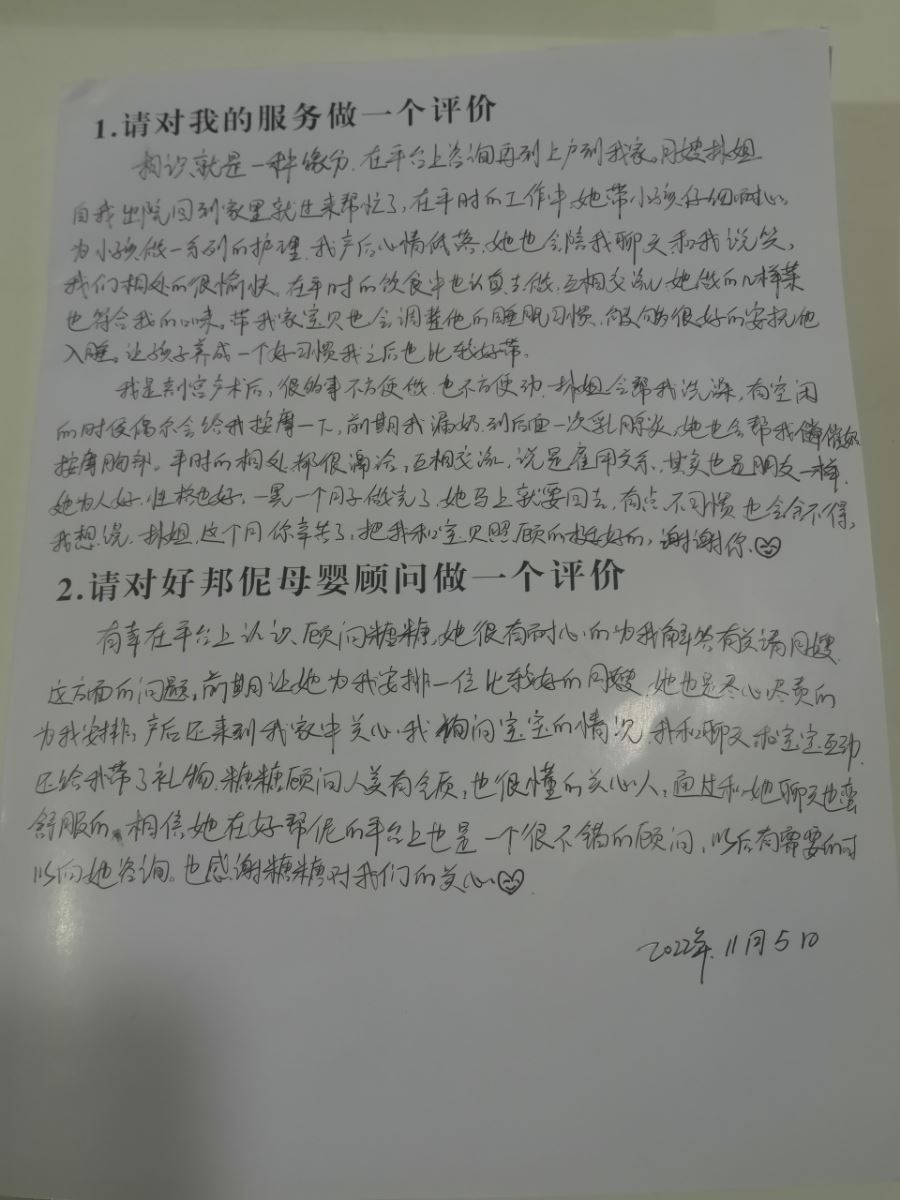 1.请对我的服务做一个评价
相识就是一种缘分.在平台上咨询再到上户到我家。月嫂姐
自我出院回到家里就过来帮忙了,在平时的工作中,她带小孩仔细耐心。
为小孩做一系列的护理.我产后心情低落,她也会陪我聊天和我说笑,
我们相处的很愉快.在平时的饮食中也认真去做,互相交流,她做的几样菜
也符合我的口味。带我家宝贝也会调整他的睡眠习惯,能够很好的安抚他
入睡。让孩子养成一个好习惯我之后也比较好带。
我是剖宫产术后,很多事不方便做.也不方便动.姐会帮我洗澡,有空闲
的时候偶尔会给我按摩一下,前期我漏奶,到后面一次乳腺炎,她也会帮我催奶
按摩胸部。平时的相处都很融洽,互相交流,说是雇用关系,其实也是朋友一样.
她为人好,性格也好,一晃一个月子做完了,她马上就要回去,有点不习惯也会舍不得,
我想说.姐.这个月你辛苦了,把我和宝贝照顾的挺好的,谢谢你.
2.请对好邦伲母婴顾问做一个评价
有幸在平台上认识顾问糖糖,她很有耐心的为我解答有关请月嫂
这方面的问题,前期让她为我安排一位比较好的月嫂.她也是尽心尽责的
为我安排,产后还来到我家中关心我询问宝宝的情况.我和聊天和宝宝互动.
还给我带了礼物.糖糖顾问人美有气质,也很懂的关心人,通过和她聊天也蛮
舒服的.相信她在好帮伲的平台上也是一个很不错的顾问,以后有需要的时
以向她咨询。也感谢糖糖对我们的关心
2022年.11月5日